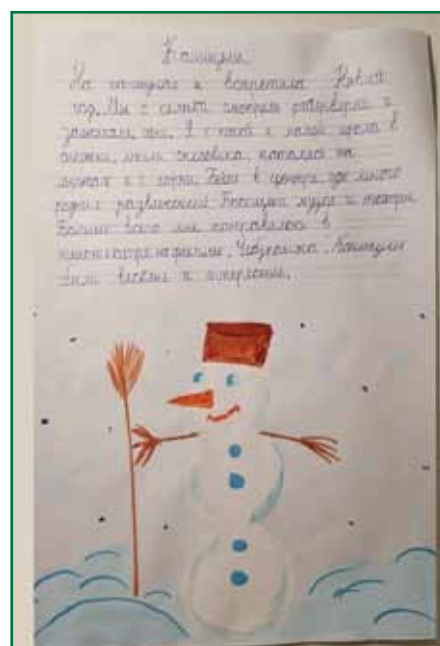 Каникулы
На каникулах я встретила Новый
год. Мы с семьей
зажигали огни. Я с папой и мамой играла в
снежки, лепила снеговика, каталась на
лыжах и с горки. в центре, где много
разных развлечений. музеи и театры.
Больше всего мне понравилось в
кинотеатре на фильме „Чебурашка". Каникулы
были весёлые и интересные.